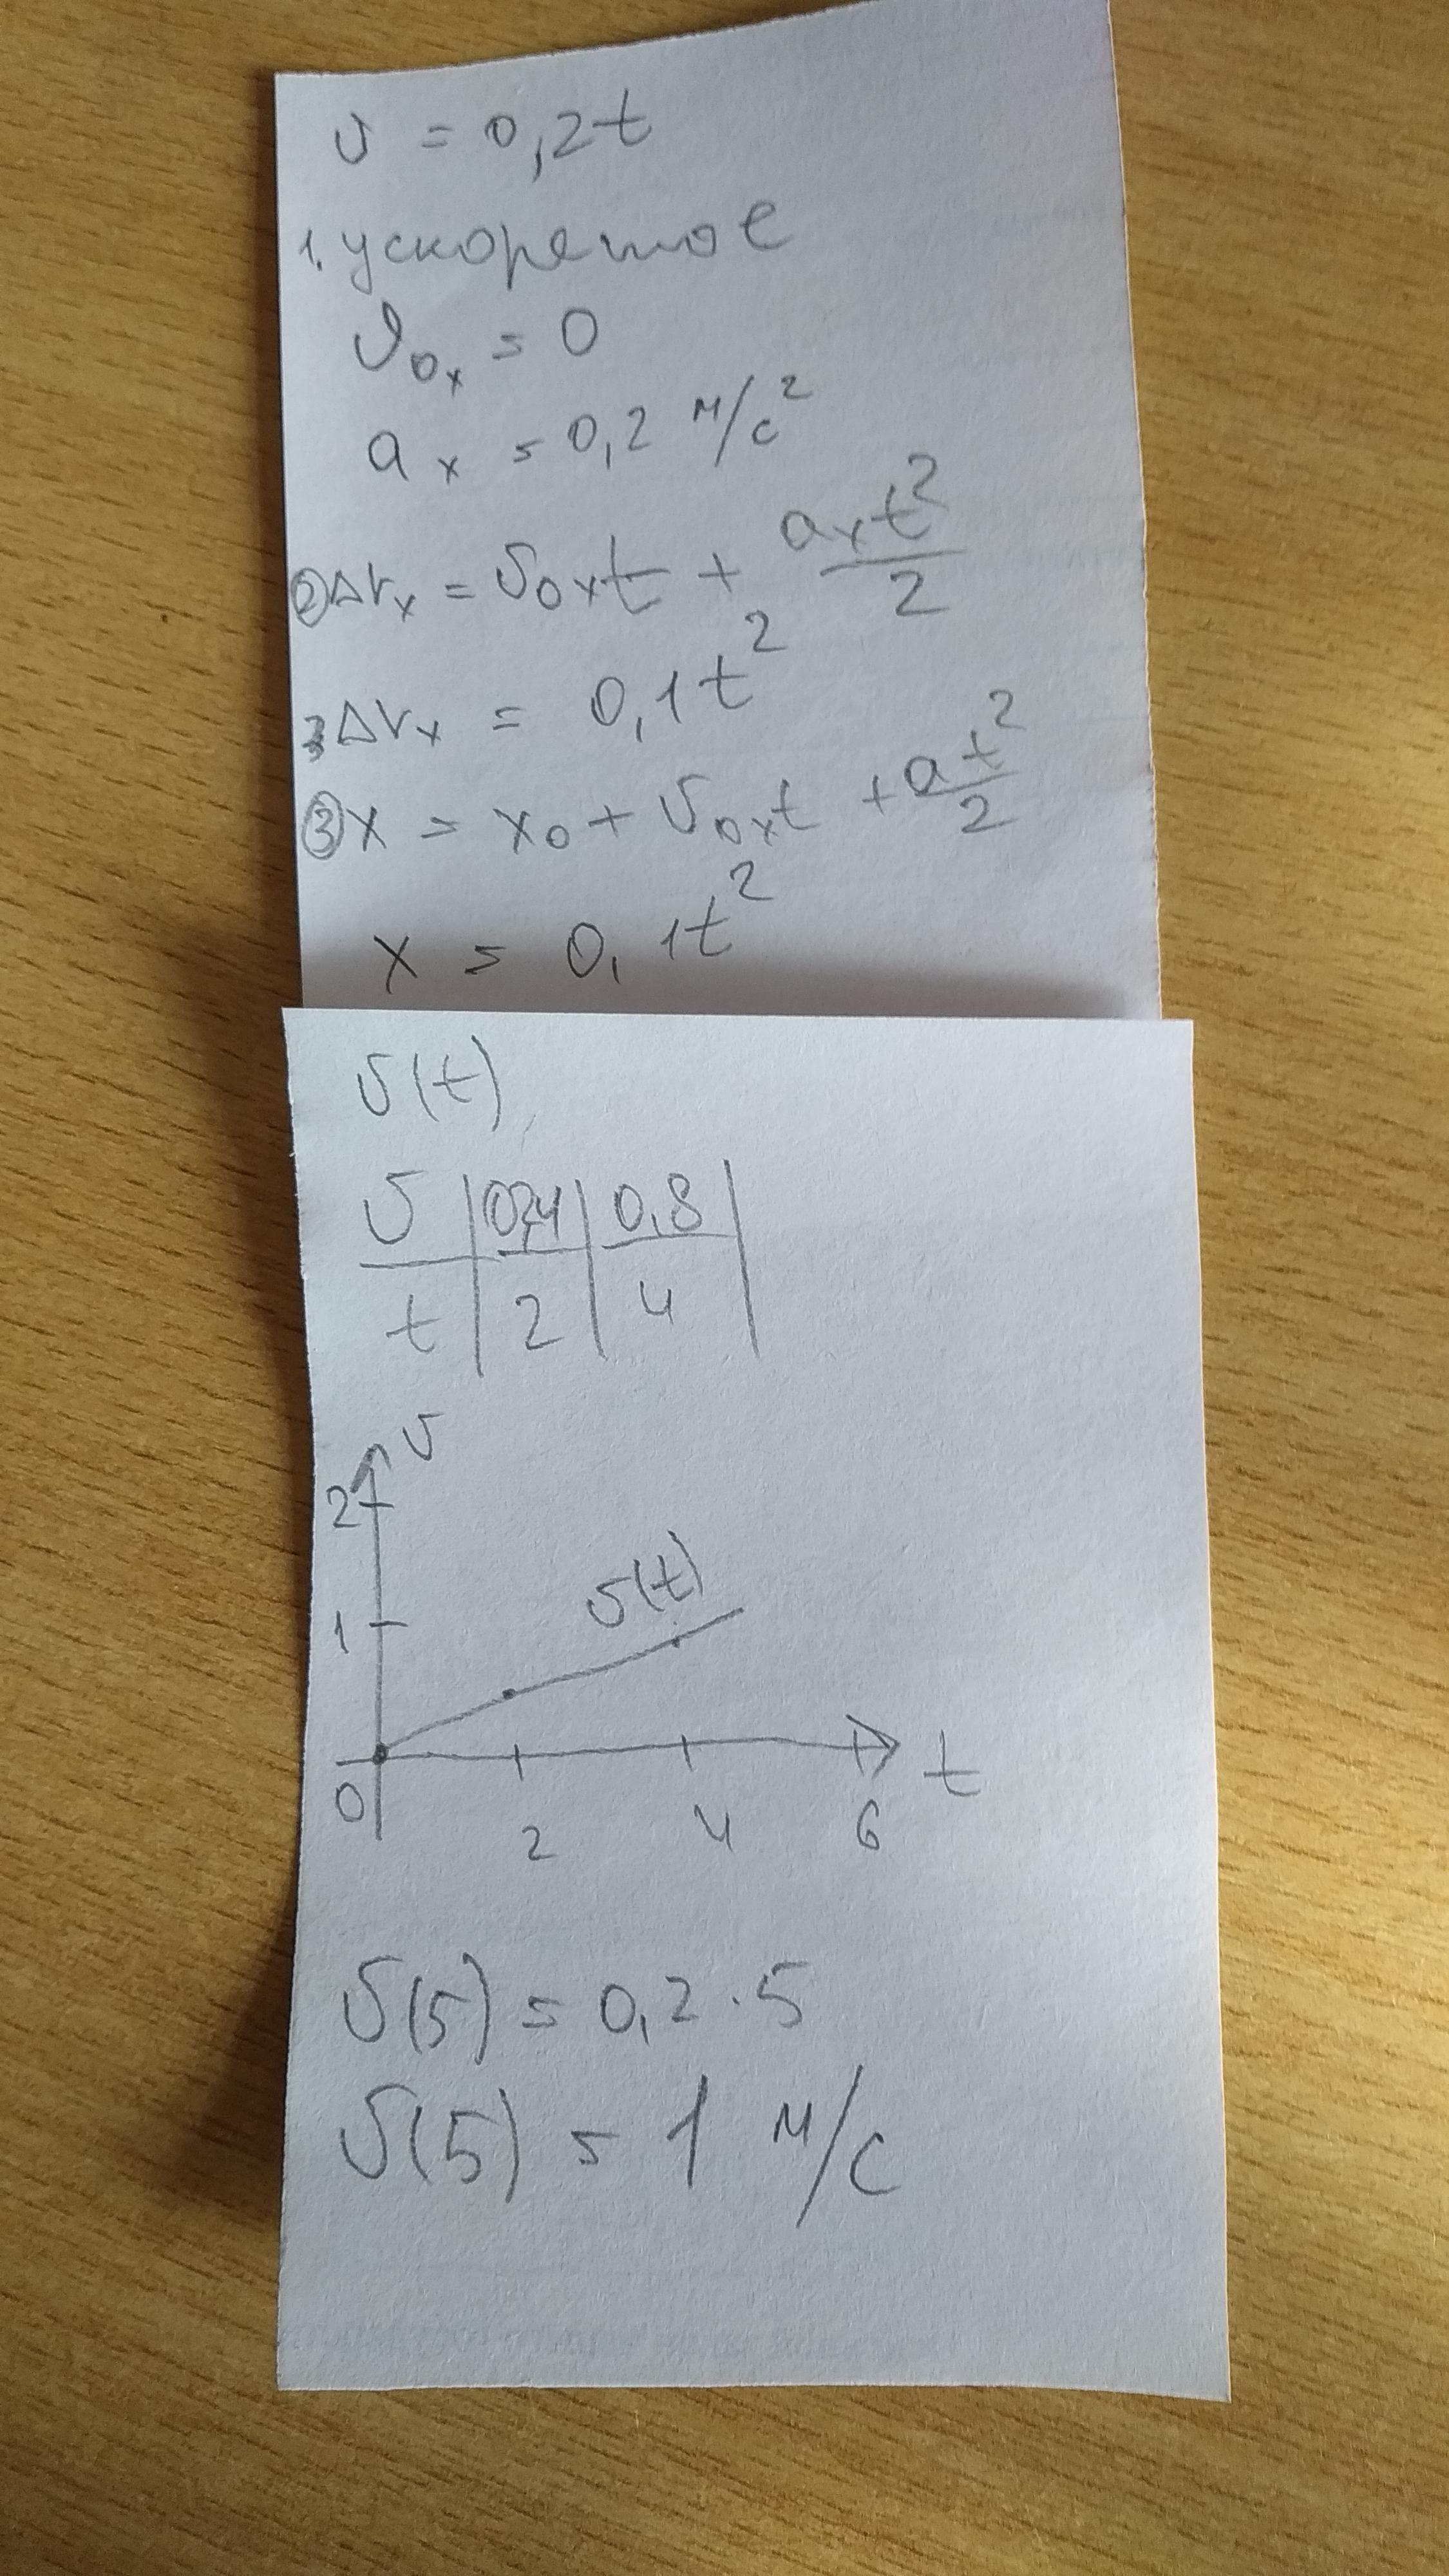 υ = 0,2t
1. ускоретое
υ₀ₓ = 0
aₓ = 0,2 м/с²
② Δrₓ = υ₀ₓt + aₓt²/2
3 Δrₓ = 0,1t²
③ x = x₀ + υ₀ₓt + at²/2
x = 0,1t²
υ(t)
υ | 0,4 | 0,8 |
t | 2 | 4 |
υ
2
υ(t)
1
t
0
2 4 6
υ(5) = 0,2 · 5
υ(5) = 1 м/с